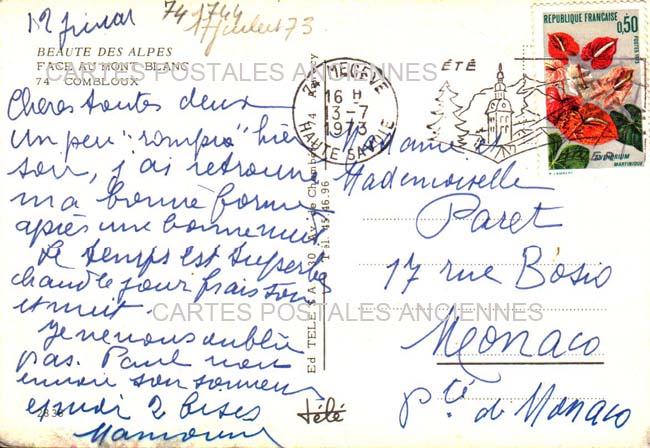 12 juillet
74 1744
17 juillet 73
BEAUTE DES ALPES
FACE AU MONT-BLANC
74 - COMBLOUX
CARTES POSTALES ANCIENNES
Cheres toutes deux
un peu "rompu" hier
soir, j'ai retrouvé
ma bonne forme
après une bonne nuit
Le temps est superbe
chaud le jour frais soir
et nuit.
Je ne vous oublie
pas. Paul vous
envoie son
et moi 2 bises
Mamour
7838
Ed TELE S A
Tél. 45.46.96
télé
74 MEGEVE
16 H
13-7
1973
HAUTE SAVOIE
ÉTÉ
REPUBLIQUE FRANÇAISE
0,50
POSTES 1973
ANTHURIUM
MARTINIQUE
Madame et
Mademoiselle
Paret
17 rue Bosio
CARTES POSTALES ANCIENNES
Monaco
Pté de Monaco